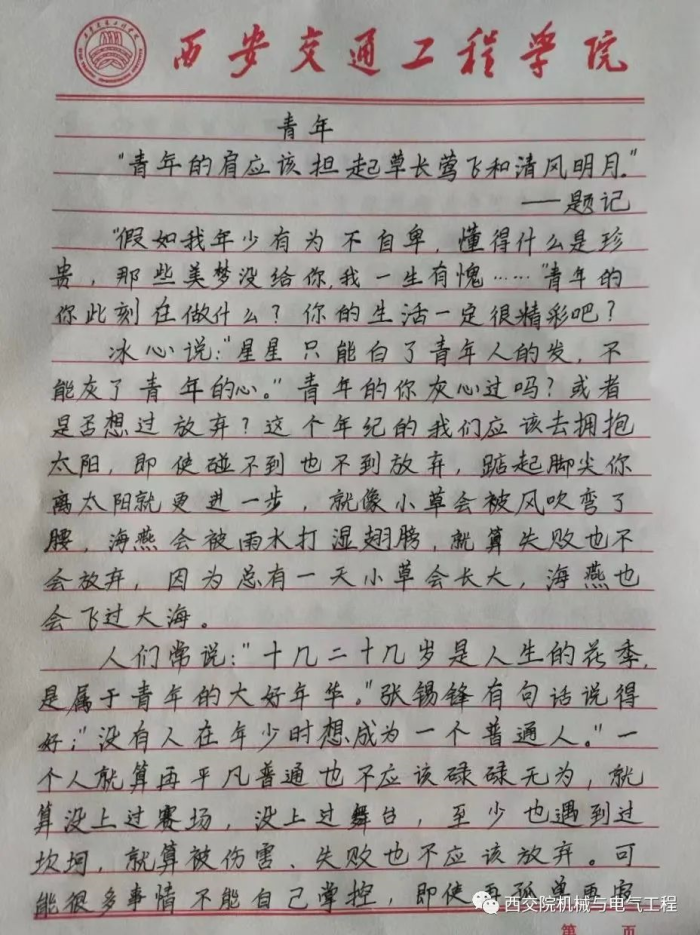 西安交通工程学院
青年
"青年的肩应该担起草长莺飞和清风明月."
——题记
"假如我年少有为不自卑，懂得什么是珍
贵，那些美梦没给你,我一生有愧……"青年的
你此刻在做什么？你的生活一定很精彩吧？
冰心说："星星只能白了青年人的发，不
能灰了青年的心。"青年的你灰心过吗？或者
是否想过放弃？这个年纪的我们应该去拥抱
太阳，即使碰不到也不到放弃，踮起脚尖你
离太阳就更进一步，就像小草会被风吹弯了
腰，海燕会被雨水打湿翅膀，就算失败也不
会放弃，因为总有一天小草会长大，海燕也
会飞过大海。
人们常说："十几二十几岁是人生的花季,
是属于青年的大好年华。"张锡锋有句话说得
好："没有人在年少时想成为一个普通人。"一
个人就算再平凡普通也不应该碌碌无为，就
算没上过赛场，没上过舞台，至少也遇到过
坎坷，就算被伤害、失败也不应该放弃。可
能很多事情不能自己掌控，即使再孤单再
西交院机械与电气工程
第 页